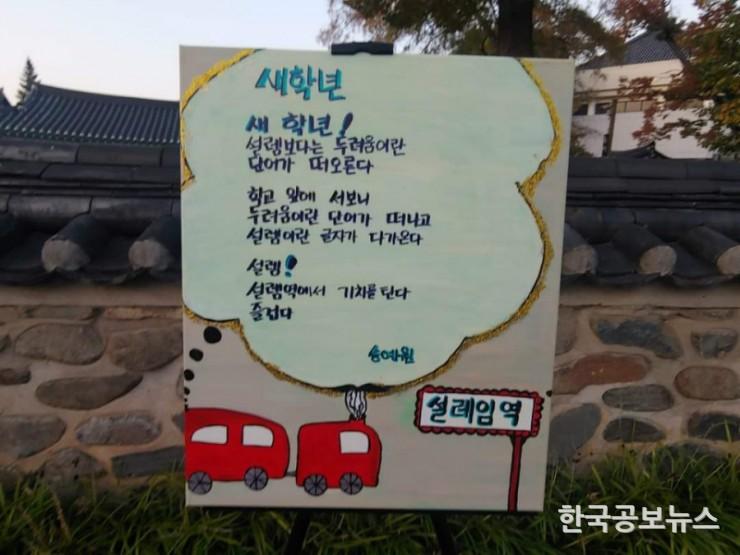 새학년
새 학년!
설렘보다는 두려움이란
단어가 떠오른다
학교 앞에 서보니
두려움이란 단어가 떠나고
설렘이란 글자가 다가온다
설렘!
설렘역에서 기차를 탄다
즐겁다
송예원
설레임역
한국공보뉴스